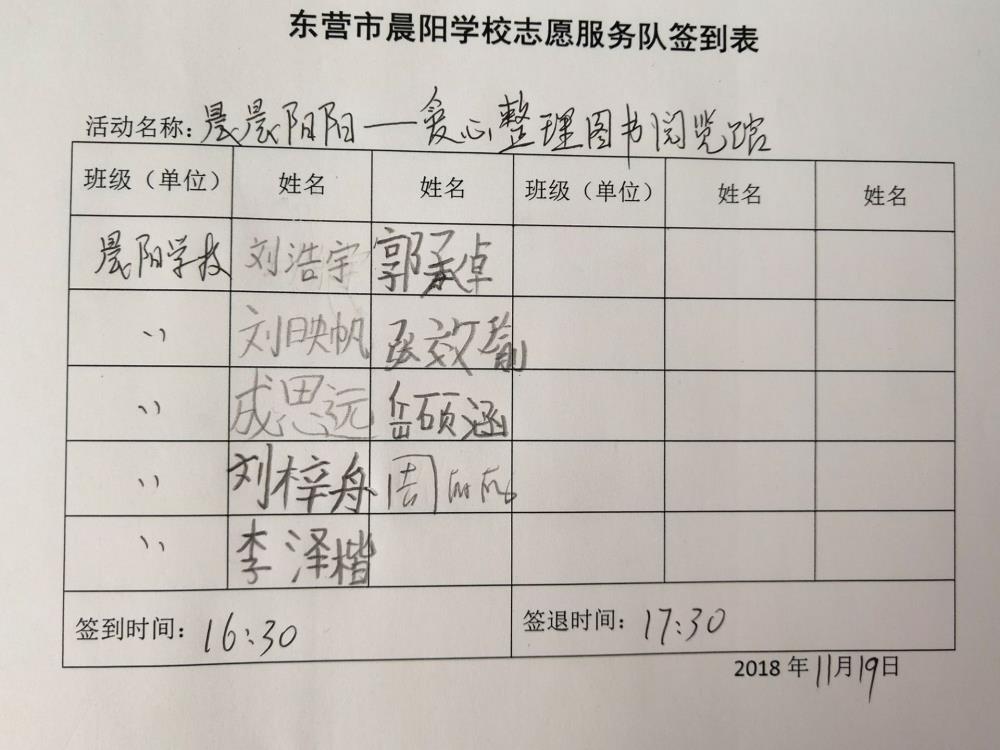 东营市晨阳学校志愿服务队签到表
活动名称：晨晨阳阳——爱心整理图书阅览馆
班级（单位） 姓名 姓名 班级（单位） 姓名 姓名
晨阳学校 刘浩宇 郭承倬
〃 刘映帆 张效瑜
〃 成思远 岳硕涵
〃 刘梓舟 周
〃 李泽楷
签到时间：16:30 签退时间：17:30
2018年11月19日